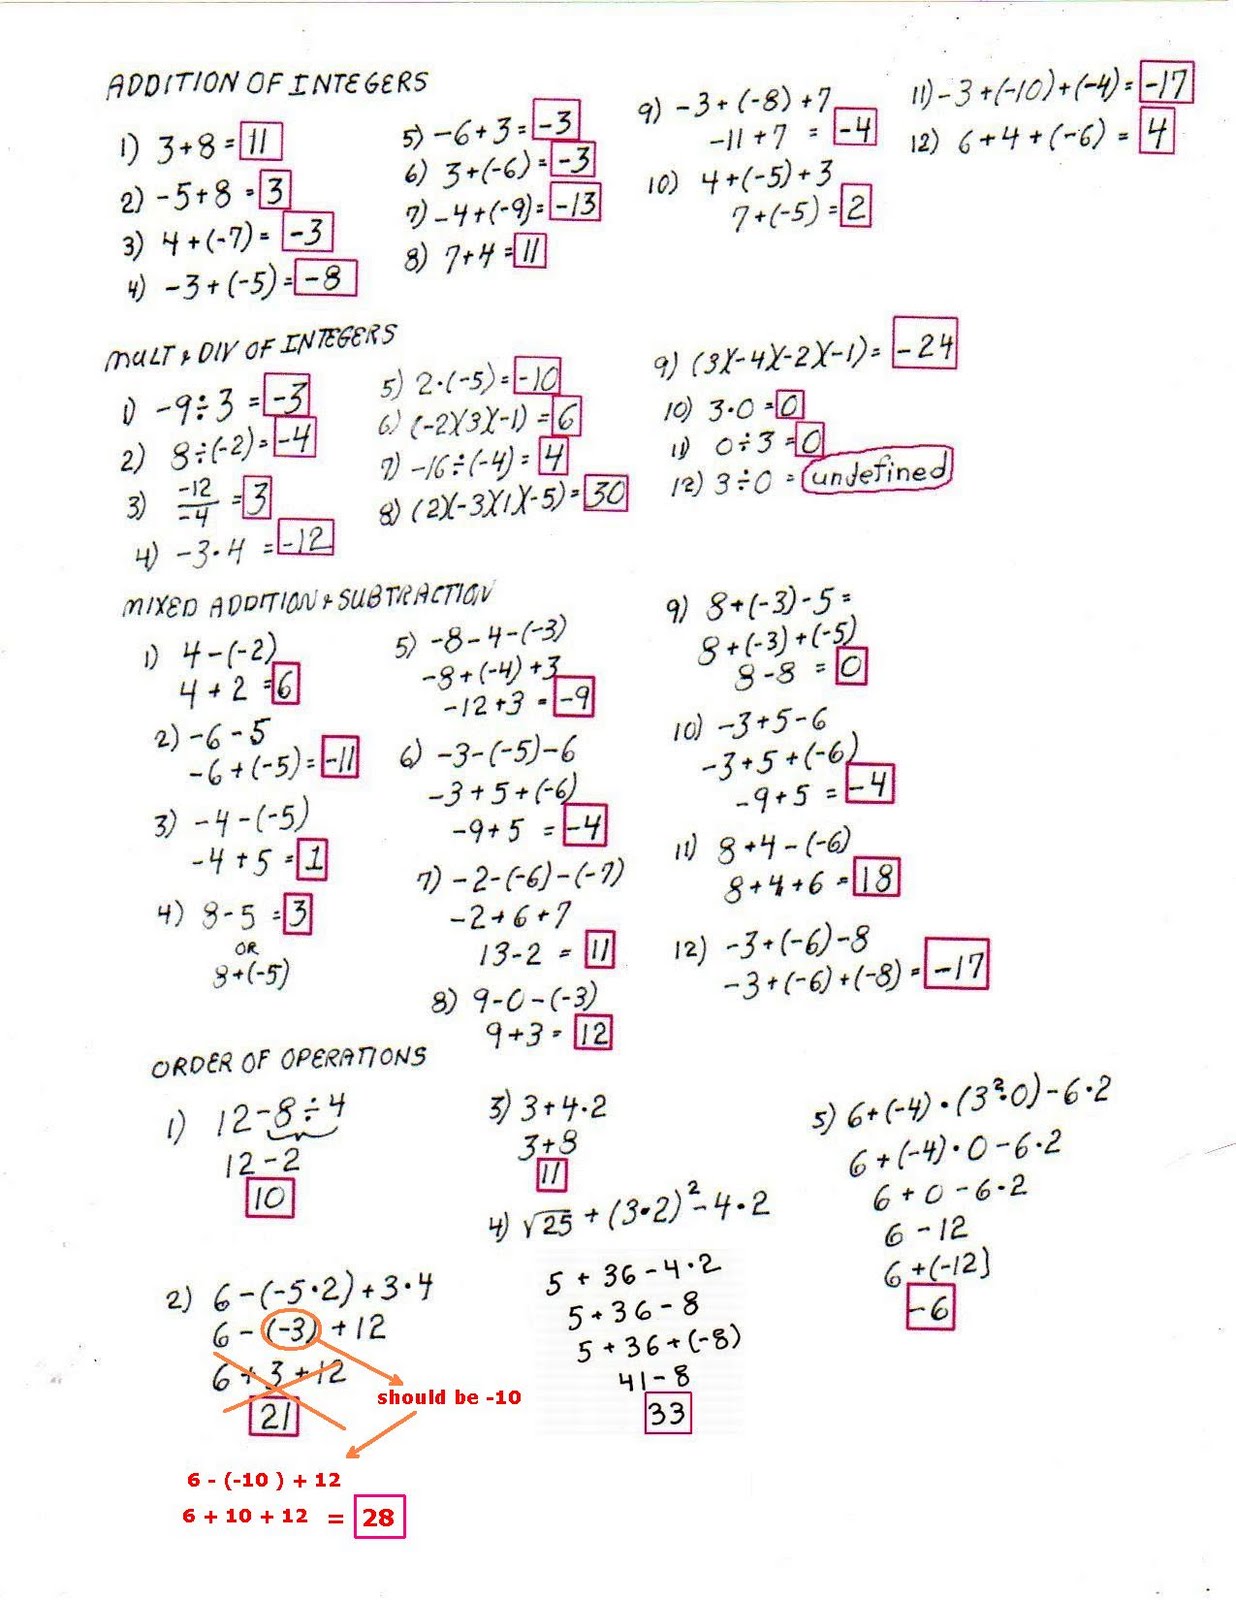 ADDITION OF INTEGERS
1) 3+8 = 11
2) -5+8 = 3
3) 4+(-7) = -3
4) -3+(-5) = -8
5) -6+3 = -3
6) 3+(-6) = -3
7) -4+(-9) = -13
8) 7+4 = 11
9) -3+(-8)+7
-11+7 = -4
10) 4+(-5)+3
7+(-5) = 2
11) -3+(-10)+(-4) = -17
12) 6+4+(-6) = 4
MULT & DIV OF INTEGERS
1) -9÷3 = -3
2) 8÷(-2) = -4
3) -12/-4 = 3
4) -3·4 = -12
5) 2·(-5) = -10
6) (-2)(3)(-1) = 6
7) -16÷(-4) = 4
8) (2)(-3)(1)(-5) = 30
9) (3)(-4)(-2)(-1) = -24
10) 3·0 = 0
11) 0÷3 = 0
12) 3÷0 = undefined
MIXED ADDITION & SUBTRACTION
1) 4-(-2)
4+2 = 6
2) -6-5
-6+(-5) = -11
3) -4-(-5)
-4+5 = 1
4) 8-5 = 3
OR
8+(-5)
5) -8-4-(-3)
-8+(-4)+3
-12+3 = -9
6) -3-(-5)-6
-3+5+(-6)
-9+5 = -4
7) -2-(-6)-(-7)
-2+6+7
13-2 = 11
8) 9-0-(-3)
9+3 = 12
9) 8+(-3)-5 =
8+(-3)+(-5)
8-8 = 0
10) -3+5-6
-3+5+(-6)
-9+5 = -4
11) 8+4-(-6)
8+4+6 = 18
12) -3+(-6)-8
-3+(-6)+(-8) = -17
ORDER OF OPERATIONS
1) 12-8÷4
12-2
10
2) 6-(-5·2)+3·4
6-(-3)+12
6+3+12
21
should be -10
6 - (-10 ) + 12
6 + 10 + 12 = 28
3) 3+4·2
3+8
11
4) √25+(3·2)²-4·2
5+36-4·2
5+36-8
5+36+(-8)
41-8
33
5) 6+(-4)·(3²·0)-6·2
6+(-4)·0-6·2
6+0-6·2
6-12
6+(-12)
-6